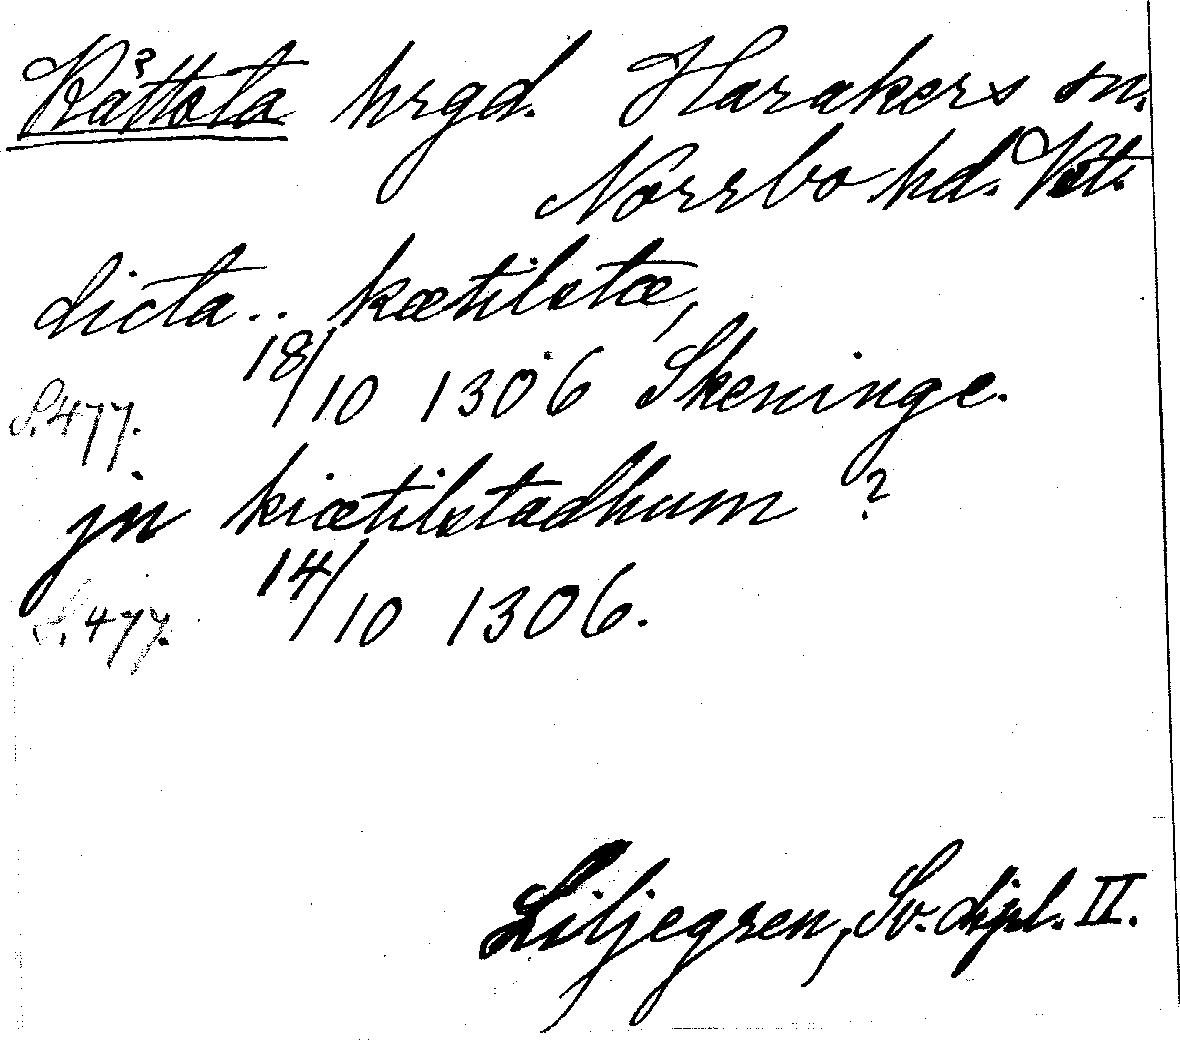 Kättsta hrgd. Harakers sn.
Norrbo hd. Vstl.
dicta.. kætilstæ,
18/10 1306 Skeninge.
S. 477.
jn kiætilstadhum ?
14/10 1306.
S. 477.
Liljegren, Sv. dipl. II.